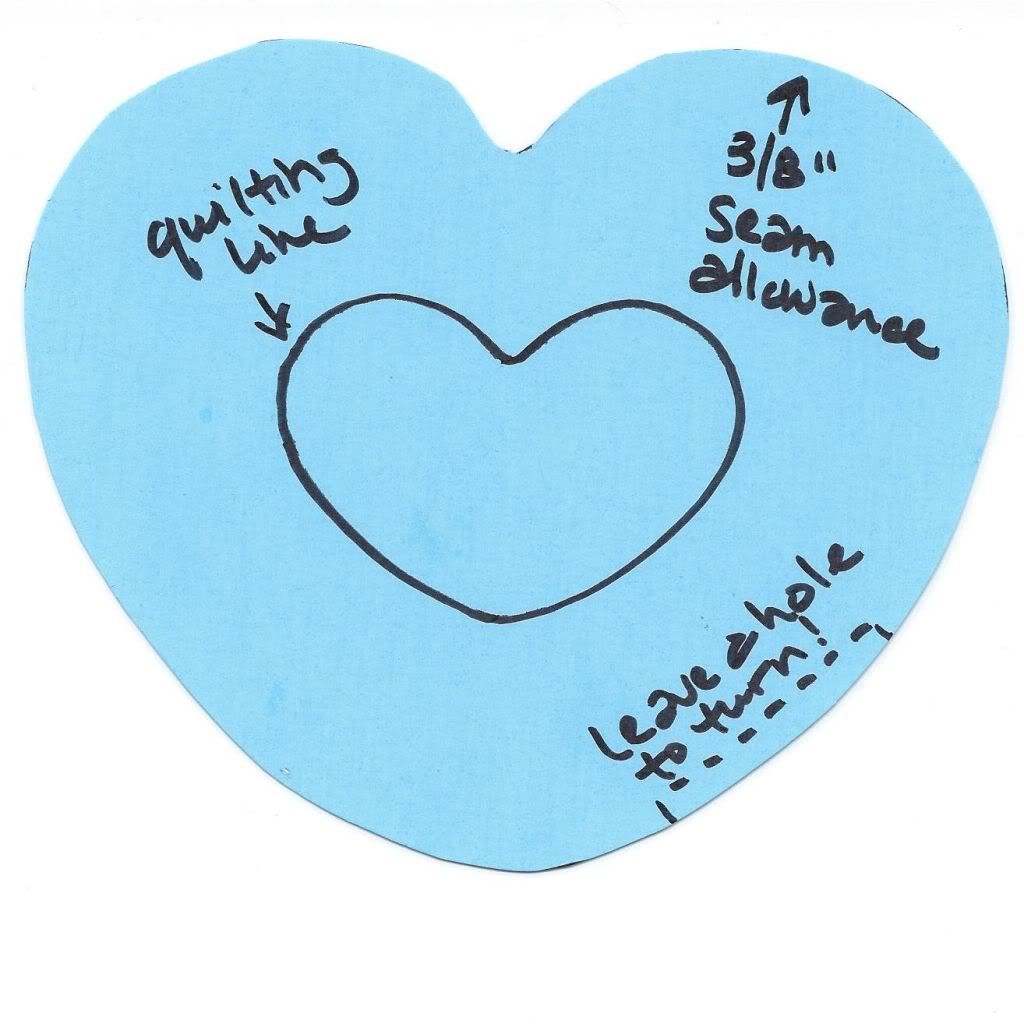 quilting
line
3/8"
seam
allowance
leave a hole
to turn!